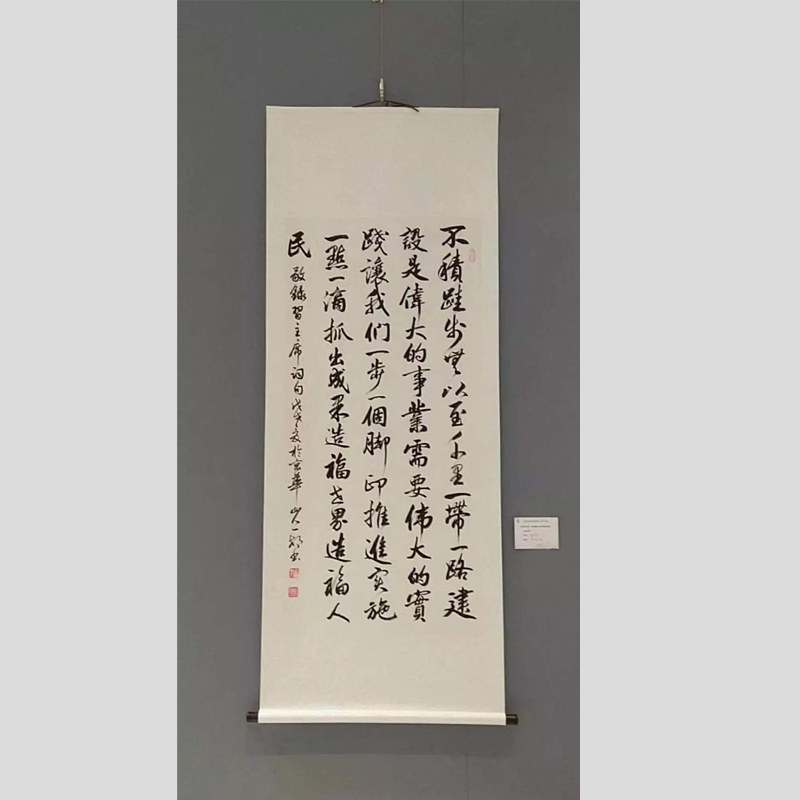 不積跬步無以至千里一帶一路建
設是偉大的事業需要偉大的實
踐讓我们一步一個脚印推進实施
一點一滴抓出成果造福世界造福人
民
敬錄習主席词句戊戌夏於京華